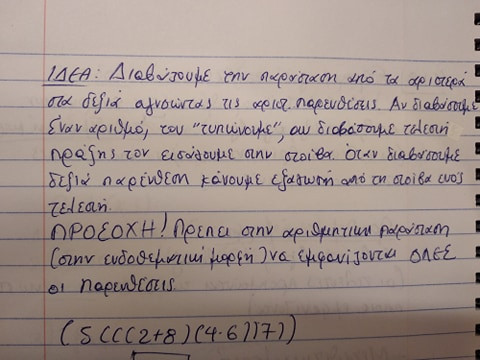 ΙΔΕΑ: Διαβάζουμε την παράσταση από τα αριστερά
στα δεξιά αγνοώντας τις αριστ. παρενθέσεις. Αν διαβάσουμε
έναν αριθμό, τον "τυπώνουμε", αν διαβάσουμε τελεστή
πράξης τον εισάγουμε στην στοίβα. Όταν διαβάσουμε
δεξιά παρένθεση κάνουμε εξαγωγή από τη στοίβα ενός
τελεστή.
ΠΡΟΣΟΧΗ! Πρέπει στην αριθμητική παράσταση
(στην ενδοθεματική μορφή) να εμφανίζονται ΟΛΕΣ
οι παρενθέσεις
(5(((2+8)(4·6))7))